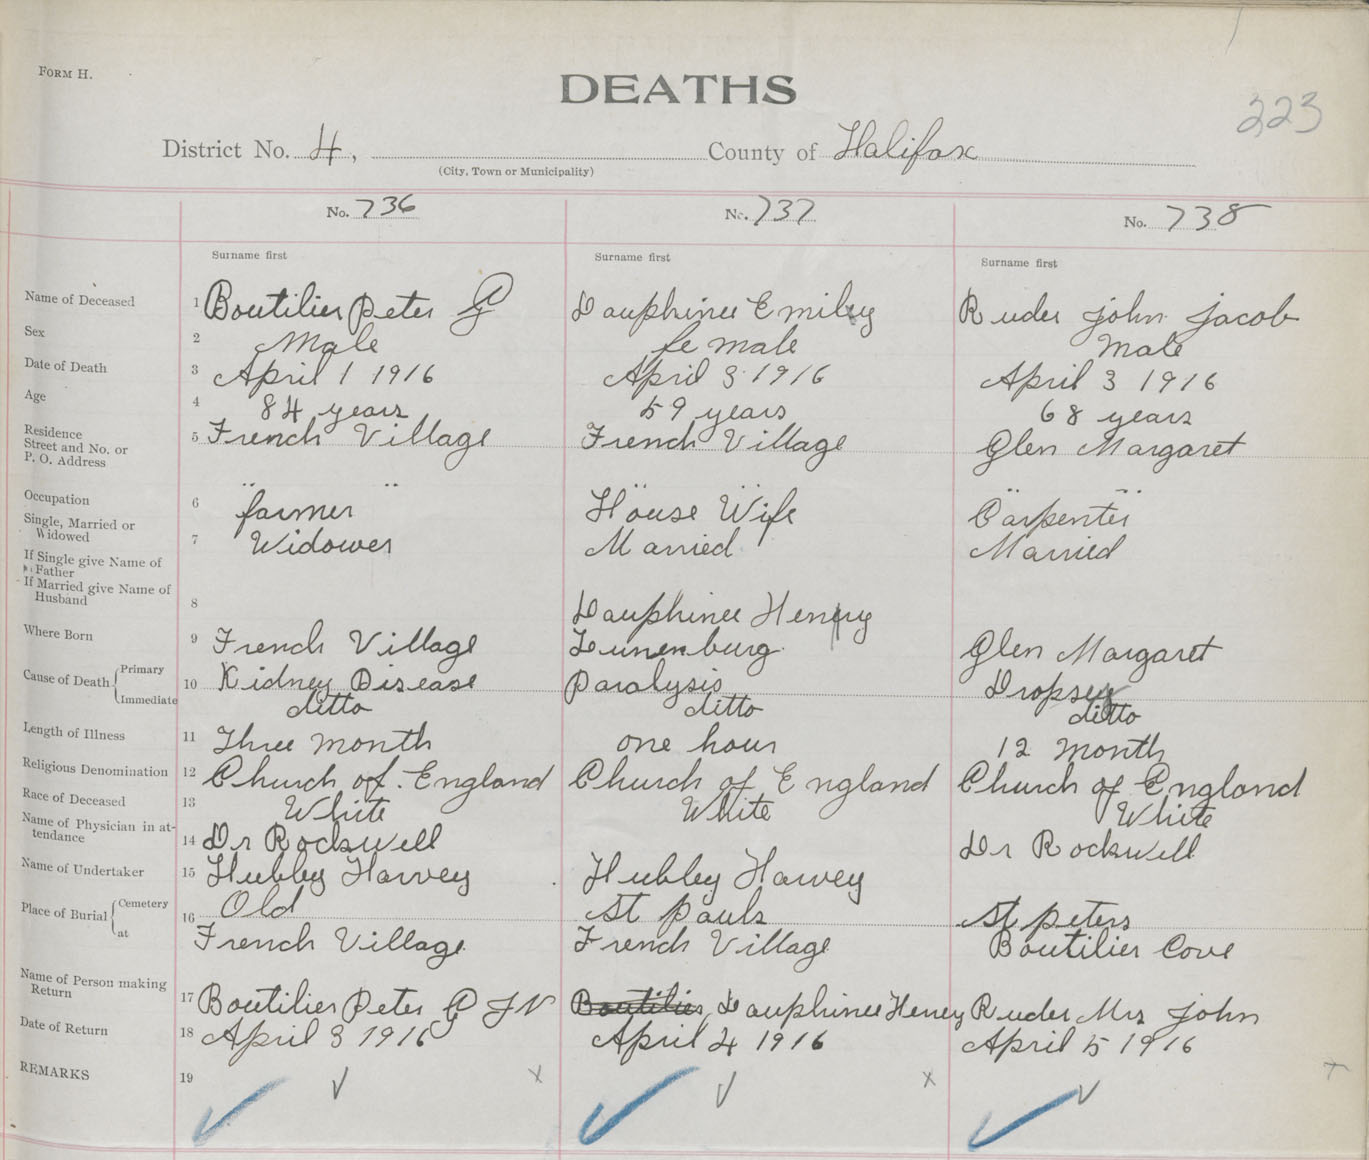 FORM H.
DEATHS
223
District No. 4, County of Halifax
(City, Town or Municipality)
No. 736 No. 737 No. 738
Surname first Surname first Surname first
Name of Deceased 1 Boutilier Peter G Dauphinee Emily Ruder John Jacob
Sex 2 Male female Male
Date of Death 3 April 1 1916 April 3 1916 April 3 1916
Age 4 84 years 59 years 68 years
Residence Street and No. or P. O. Address 5 French Village French Village Glen Margaret
Occupation 6 farmer House Wife Carpenter
Single, Married or Widowed 7 Widower Married Married
If Single give Name of Father
If Married give Name of Husband 8 Dauphinee Henry
Where Born 9 French Village Lunenburg Glen Margaret
Cause of Death Primary 10 Kidney Disease Paralysis Dropsey
Immediate ditto ditto ditto
Length of Illness 11 Three month one hour 12 month
Religious Denomination 12 Church of England Church of England Church of England
Race of Deceased 13 White White White
Name of Physician in attendance 14 Dr Rockwell Dr Rockwell
Name of Undertaker 15 Hubley Harvey Hubley Harvey
Place of Burial Cemetery 16 Old St Pauls St Peters
at French Village French Village Boutilier Cove
Name of Person making Return 17 Boutilier Peter G JN Boutilier, Dauphinee Henry Ruder Mrs John
Date of Return 18 April 3 1916 April 4 1916 April 5 1916
REMARKS 19